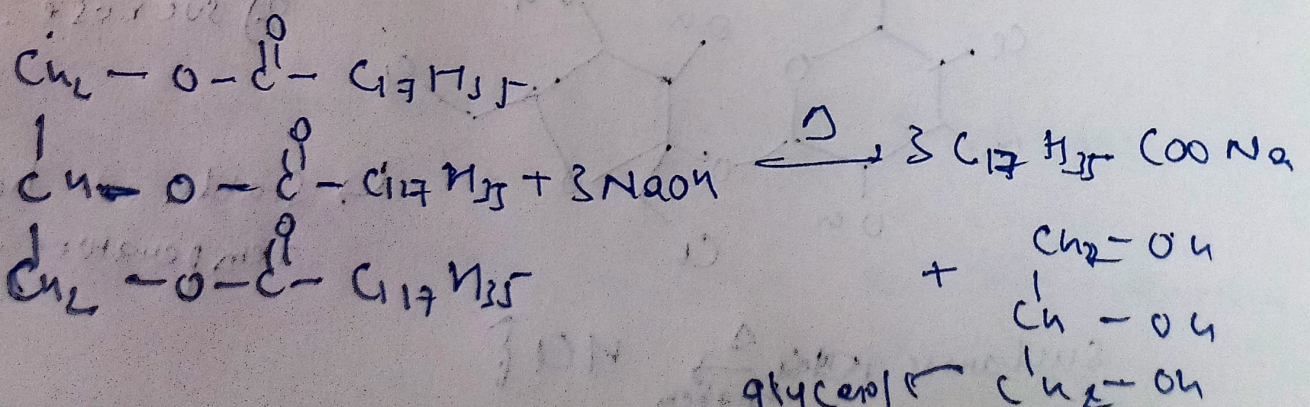 O
CH₂ – O – C – C₁₇H₃₅
O
CH – O – C – C₁₇H₃₅ + 3NaOH Δ → 3 C₁₇H₃₅ COO Na
O
CH₂ – O – C – C₁₇H₃₅
+ CH₂ – OH
CH – OH
glycerol ← CH₂ – OH